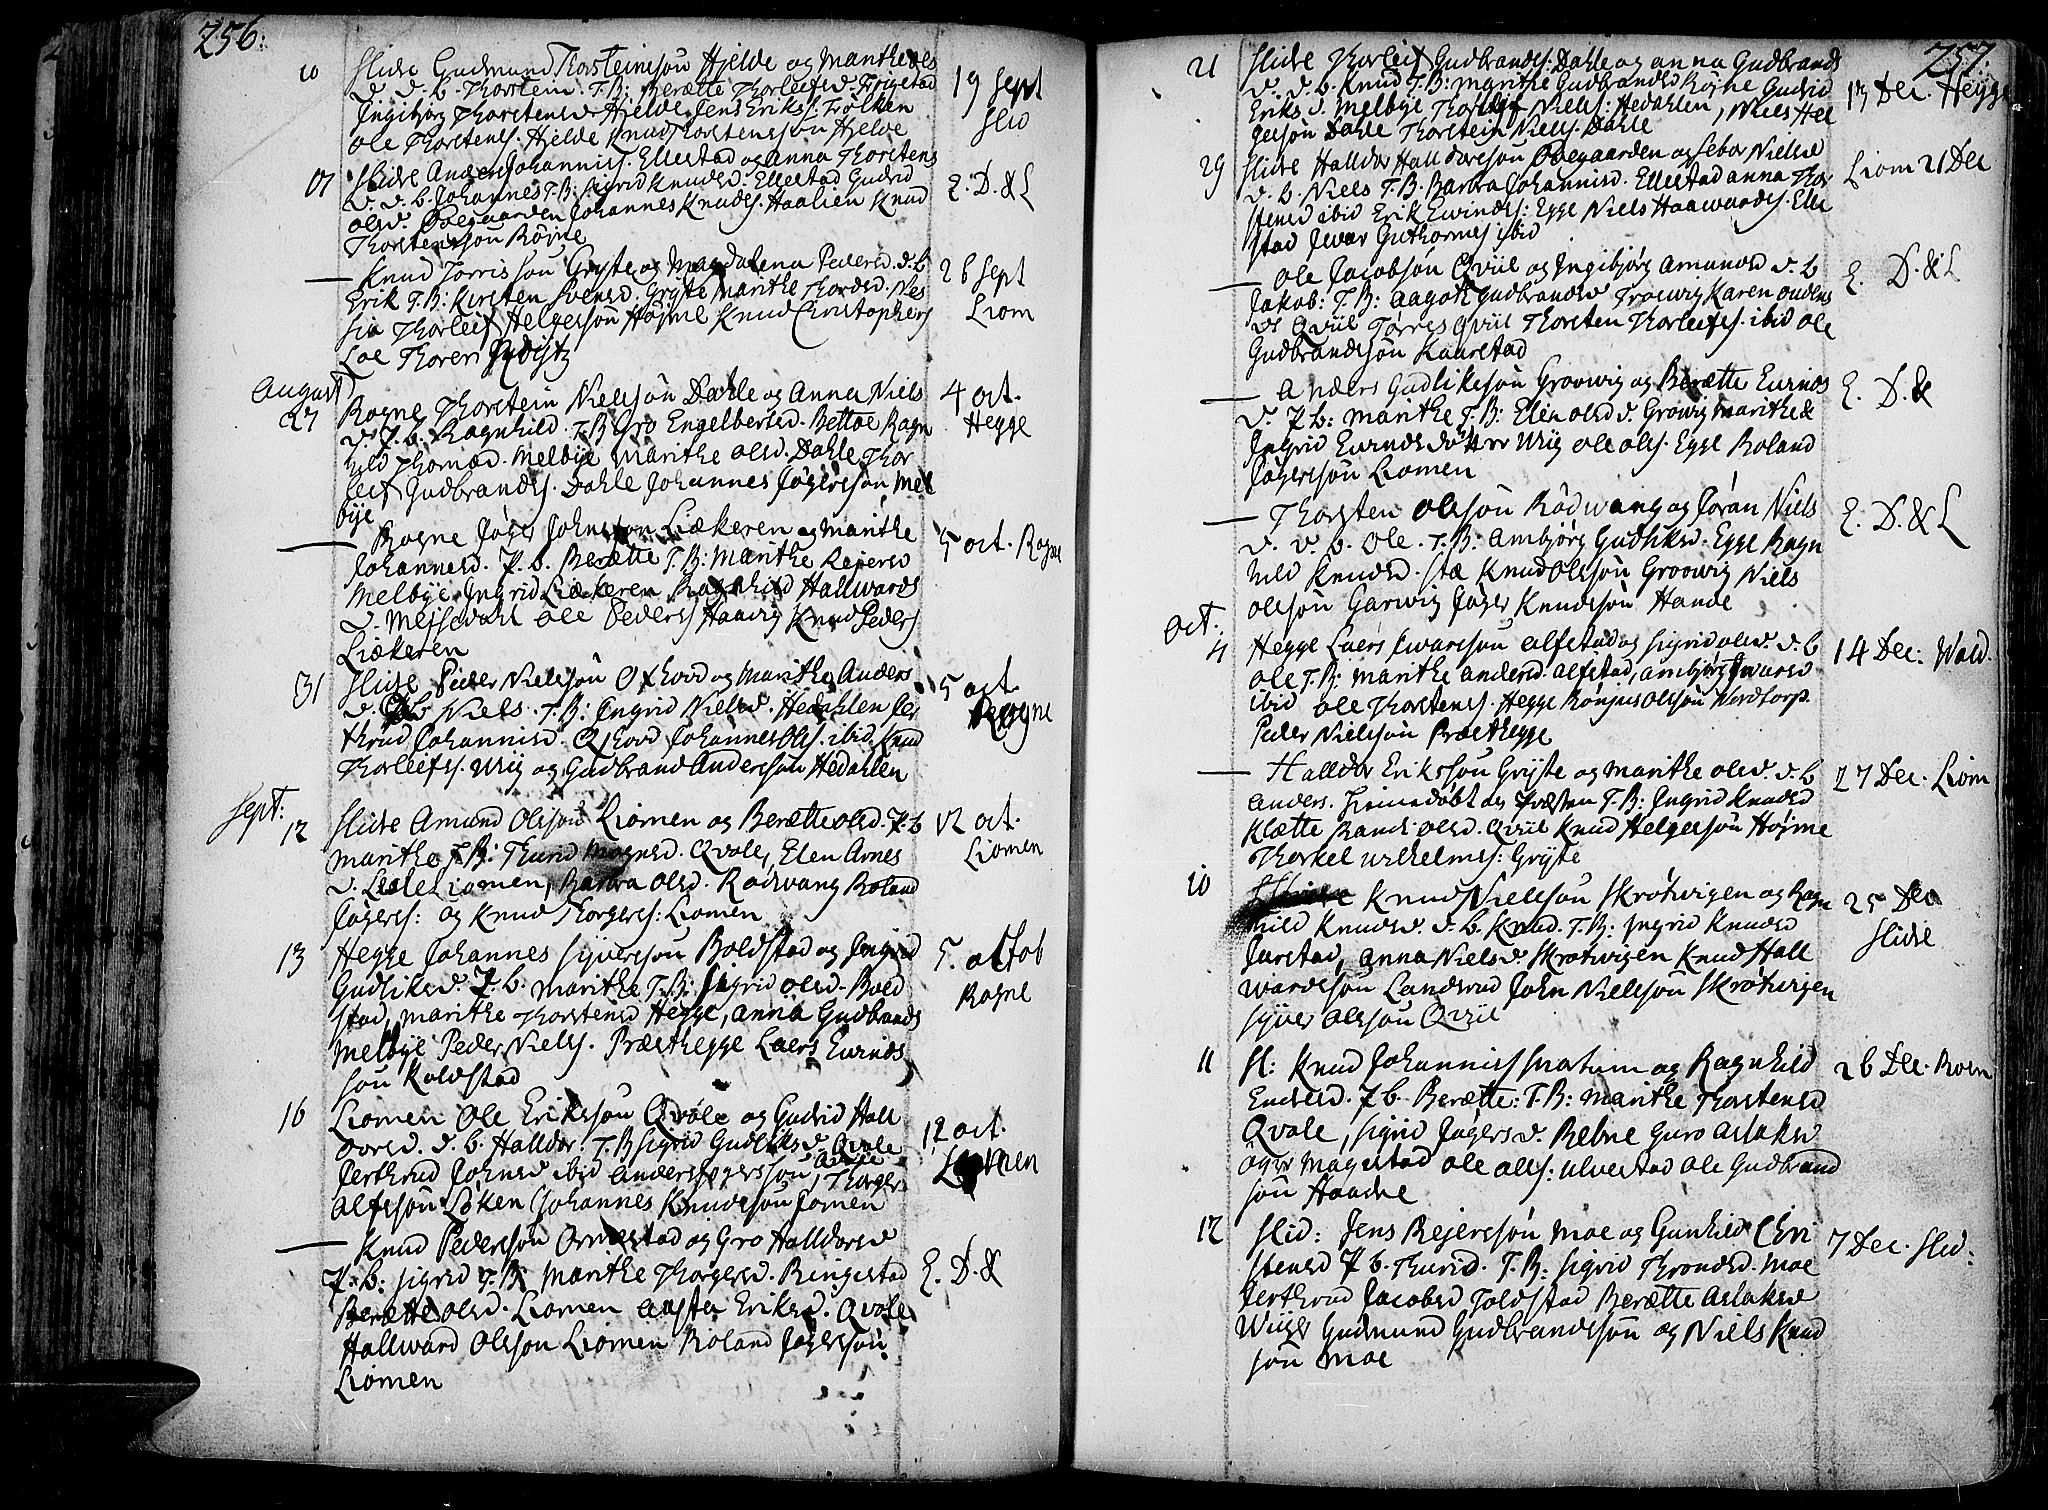 256.
10 Slidre Gudmund Thorsteinsøn Hjelde og Marithe Ols
D. D. B. Thorstein. T. B: Berætte Thorleifsd. Frigstad
Ingibjørg Thorstensd Hjelde, Jens Erikss. Folken
Ole Thorstens. Hjelde Knud Thorstenssøn Hjelde
19 Sept
Slid
Slidre Anders Johanniss. Ellestad og Anna Thorstens
D. D. B. Johannes T. B: Sigrid Knudsd. Ellestad Gudrid
Olsd. Øvegaarden Johannes Knuds. Haalien Knud
Thorstenssøn Røjne
E. D. & L
— Knud Torrissøn Gryte og Magdalena Pedersd. D. B
Erik T. B: Kirsten Svensd. Gryte Marithe Thordsd. Nes
Thorleif Helgersøn Højme Knud Christophers
Loe Thoren
26 Sept
Liom
August
27 Rogne Thorstein Nielssøn Dahle og Anna Niels
D. P. B. Ragnhild. T. B Gro Engelbertsd. Bettoe Ragn
hild Thomasd. Melbye Marithe Olsd. Dahle Thor
leif Gudbrands. Dahle Johannes Jøgerssøn Mel
bye
4 Oct.
Hegge
— Rogne Jøger Johnssøn Liækeren og Marithe
Johannesd. P. B. Berætte T. B: Marithe Rejersd
Melbye Ingrid Liækeren Ragnhild Hallwards
D. Ole Peders Haavig Knud Peders
Liækeren
5 Oct. Rogne
31 Slidre Peder Nielssøn Oxhovd og Marithe Anders
D. Niels. T. B: Ingrid Nielsd. Hedahlen Jer
thrud Johannisd. Oxhovd Johannes Ols. ibid. Knud
Thorleifs. Wiig og Gudbrand Anderssøn Hedahlen
5 Oct.
Rogne
Sept:
12 Slidre Amund Olssøn Liomen og Berætte Olsd. P. B
Marithe T. B: Thurid Mognsd. Qvale, Elen Arnes
D. Lille Liomen, Barbra Olsd. Rødwang Roland
Jøgers: og Knud Thorgers: Liomen
12 Oct.
Liomen
13 Hegge Johannes Syverssøn Boldstad og Ingrid
Gudliksd. P. B. Marithe T. B: Sigrid Olsd. Bold
stad, Marithe Thorstensd Hegge, Anna Gudbrands
Melbye Peder Niels. Præsthegge Laers Eurinds
søn Koldstad
5. Octob
Rogne
16 Liomen Ole Erikssøn Qvale og Gudrid Hall
dorsd. D. B. Halldor. T. B Sigrid Gudliksd. Qvale
Jerthrud Johnsd ibid Anders Jøgerssøn Qvale, Thorger
Alfssøn Løken Johannes Knudssøn Jomen
12 Oct.
Liomen
— Knud Pederssøn Ormestad og Gro Halldorsd
P. B: Sigrid T. B: Marithe Thorgersd. Ringestad
Berætte Olsd. Liomen Auster Eriksd. Qvale
Hallward Olssøn Liomen Roland Jøgerssøn
Liomen
E. D. &
257.
21 Slidre Thorleif Gudbrands: Dahle og Anna Gudbrands
D. D. B. Knud T. B: Marithe Gudbrandsd Røjne Gudrid
Eriks D. Melbye Thorleif Niels: Hedahlen, Niels Hel
gersøn Dahle Thorstein Niels. Dahle
13 Dec. Hegge
29 Slidre Halldor Halldorssøn Øvegaarden og Sebor Nielsd
D. B. Niels T. B. Barbra Johannisd. Ellestad Anna Thor
stensd ibid Erik Ewinds: Egge Niels Haawards. Elle
stad Iwar Guthorms ibid
Liom 21 Dec
— Ole Jacobsøn Qviil og Ingibjørg Amunds D. B
Jakob: T. B: Aagoth Gudbrandsd Trowig Karen Oudens
D. Qviil Torres Qviil Thorsten Thorleifs. ibid Ole
Gudbrandssøn Kaarstad
E. D. & L
— Anders Gudlikssøn Groowig og Berætte Eurinds
D. P. B: Marithe T. B: Elen Olsd. Growig Marithe &
Ingrid Eurindsdøttrer Wiig Ole Ols. Egge Roland
Jøgerssøn Liomen
E. D. &
— Thorsten Olssøn Rødwang og Jøran Niels
D. D. B. Ole. T. B: Ambjørg Gudliksd. Egge Ragn
hild Knudsd. Stæ Knud Olssøn Groowig Niels
Olssøn Garwig Jøger Knudssøn Hande
E. D. & L
Oct:
4 Hegge Laers Iwarssøn Alfstad og Sigrid Olsd. D. B
Ole T. B: Marithe Andersd. Alfstad, Ambjørg Iwarsd
ibid Ole Thorstens. Hegge Rønjus Olssøn Nordtorp.
Peder Nielssøn Præsthegge
14 Dec: Wold.
— Halldor Erikssøn Gryte og Marithe Olsd. D. B
Anders. Hjemedøbt ag Præsten T. B: Ingrid Knudsd
Klætte Randi Olsd. Qviil Knud Helgerssøn Højme
Thorkel Wilhelms: Gryte
27 Dec. Liom
10 Knud Nielssøn Skrøtwigen og Ragn
hild Knudsd. D. B. Knud. T. B: Ingrid Knudsd
Jarstad, Anna Nielsd. Skrøtwigen Knud Hall
wardssøn Landsrud John Nielssøn Skrøtwigen
Syver Olssøn Qviil
25 Dec
Slidre
11 Sl: Knud Johanniss Snatum og Ragnhild
Endresd. P. B. Berætte: T. B: Marithe Thorstensd
Qvale, Sigrid Jøgers D. Rebne Guro Aslaksd
Magestad Ole Olls: Ulvestad Ole Gudbrand
søn Haadne
26 Dec. Roen
12 Slid: Jens Rejerssøn Moe og Gunhild Chri
stensd P. B. Thurid. T. B: Sigrid Throndsd. Moe
Jerthrud Jacobsd Joldstad Berætte Aslaksd
Wiiger Gudmund Gudbrandssøn og Niels Knud
søn Moe
7 Dec. Slid: